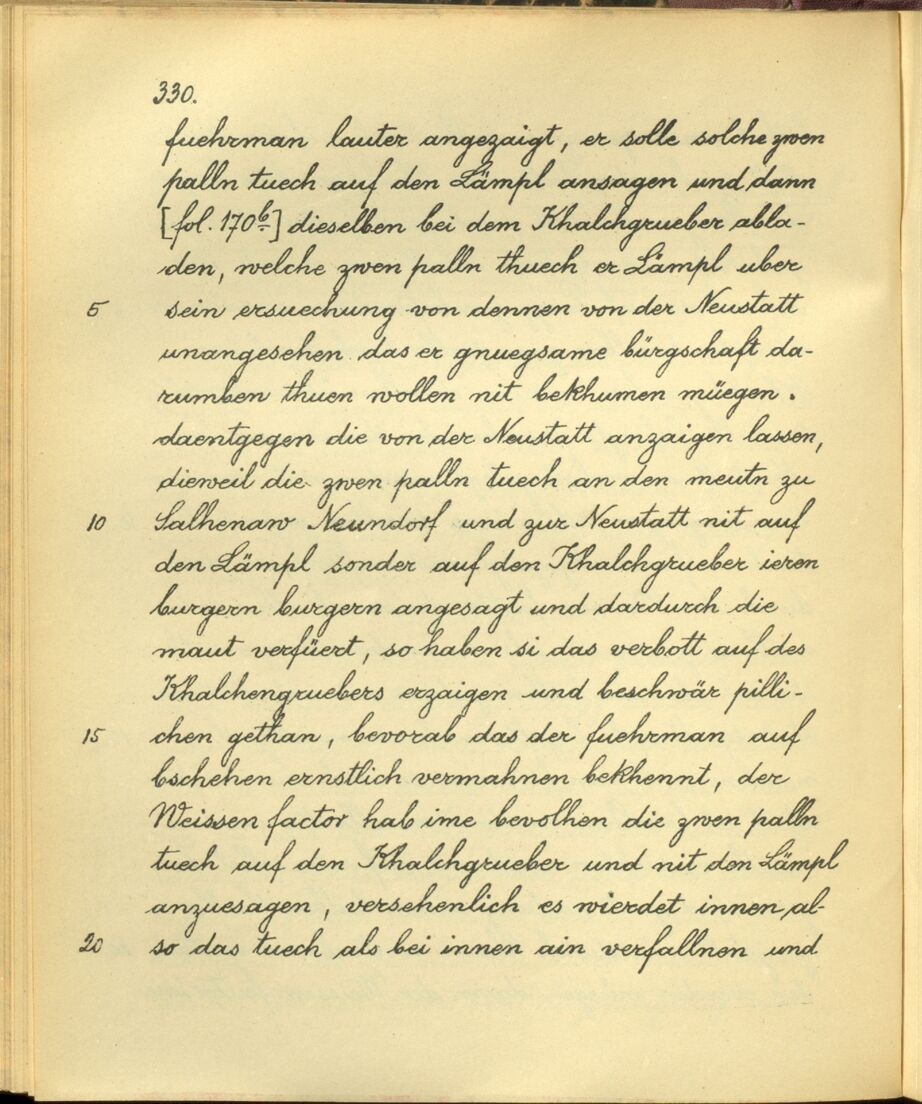 330.
fuehrman lauter angezaigt, er solle solche zwen
palln tuech auf den Lämpl ansagen und dann
[fol. 170b] dieselben bei dem Khalchgrueber abla-
den, welche zwen palln thuech er Lämpl uber
5 sein ersuechung von dennen von der Neustatt
unangesehen das er gnuegsame bürgschaft da-
rumben thuen wollen nit bekhumen müegen.
daentgegen die von der Neustatt anzaigen lassen,
dieweil die zwen palln tuech an den meutn zu
10 Salhenaw Neundorf und zur Neustatt nit auf
den Lämpl sonder auf den Khalchgrueber ieren
burgern burgern angesagt und dardurch die
maut verfüert, so haben si das verbott auf des
Khalchengruebers erzaigen und beschwär pilli-
15 chen gethan, bevorab das der fuehrman auf
bschehen ernstlich vermahnen bekhennt, der
Weissen factor hab ime bevolhen die zwen palln
tuech auf den Khalchgrueber und nit den Lämpl
anzuesagen, versehenlich es wierdet innen al-
20 so das tuech als bei innen ain verfallnen und